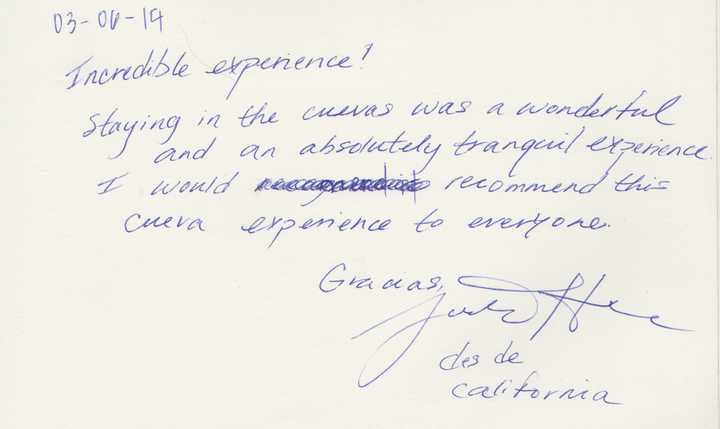 03-06-14
Incredible experience!
Staying in the cuevas was a wonderful
and an absolutely tranquil experience.
I would recommend this
cueva experience to everyone.
Gracias,
des de
California